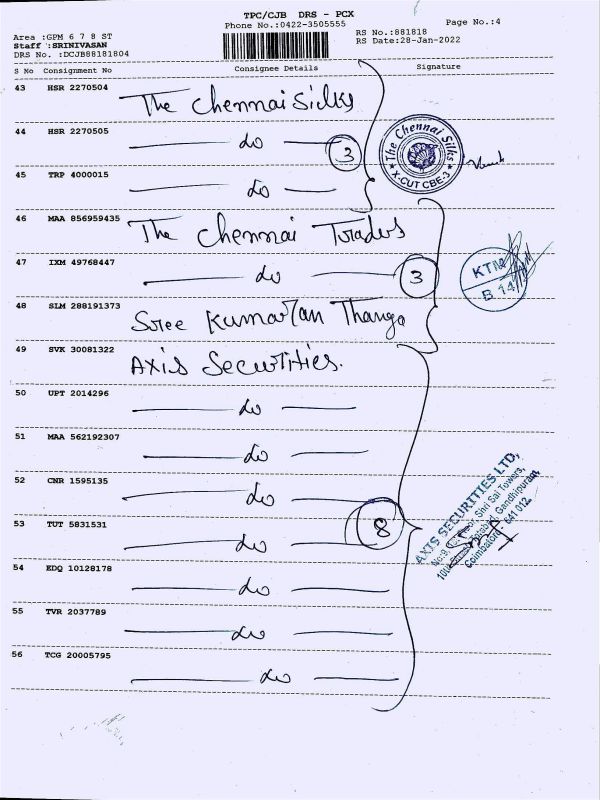 TPC/CJB DRS - PCX
Phone No.:0422-3505555
Page No.:4
Area :GPM 6 7 8 ST
Staff :SRINIVASAN
DRS No. :DCJB88181804
RS No.:881818
RS Date:28-Jan-2022
S No Consignment No Consignee Details Signature
43 HSR 2270504 The Chennai Silks
44 HSR 2270505 do
3
The Chennai Silks
X-CUT CBE-3
45 TRP 4000015 do
46 MAA 856959435 The Chennai Traders
47 IXM 49768447 do
3
KTM
B 14
48 SLM 288191373 Sree Kumaran Thanga
49 SVK 30081322 Axis Securities.
50 UPT 2014296 do
51 MAA 562192307 do
52 CNR 1595135 do
8
AXIS SECURITIES LTD,
Shri Sai Towers,
Gandhipuram
Coimbatore - 641 012.
53 TUT 5831531 do
54 EDQ 10128178 do
55 TVR 2037789 do
56 TCG 20005795 do